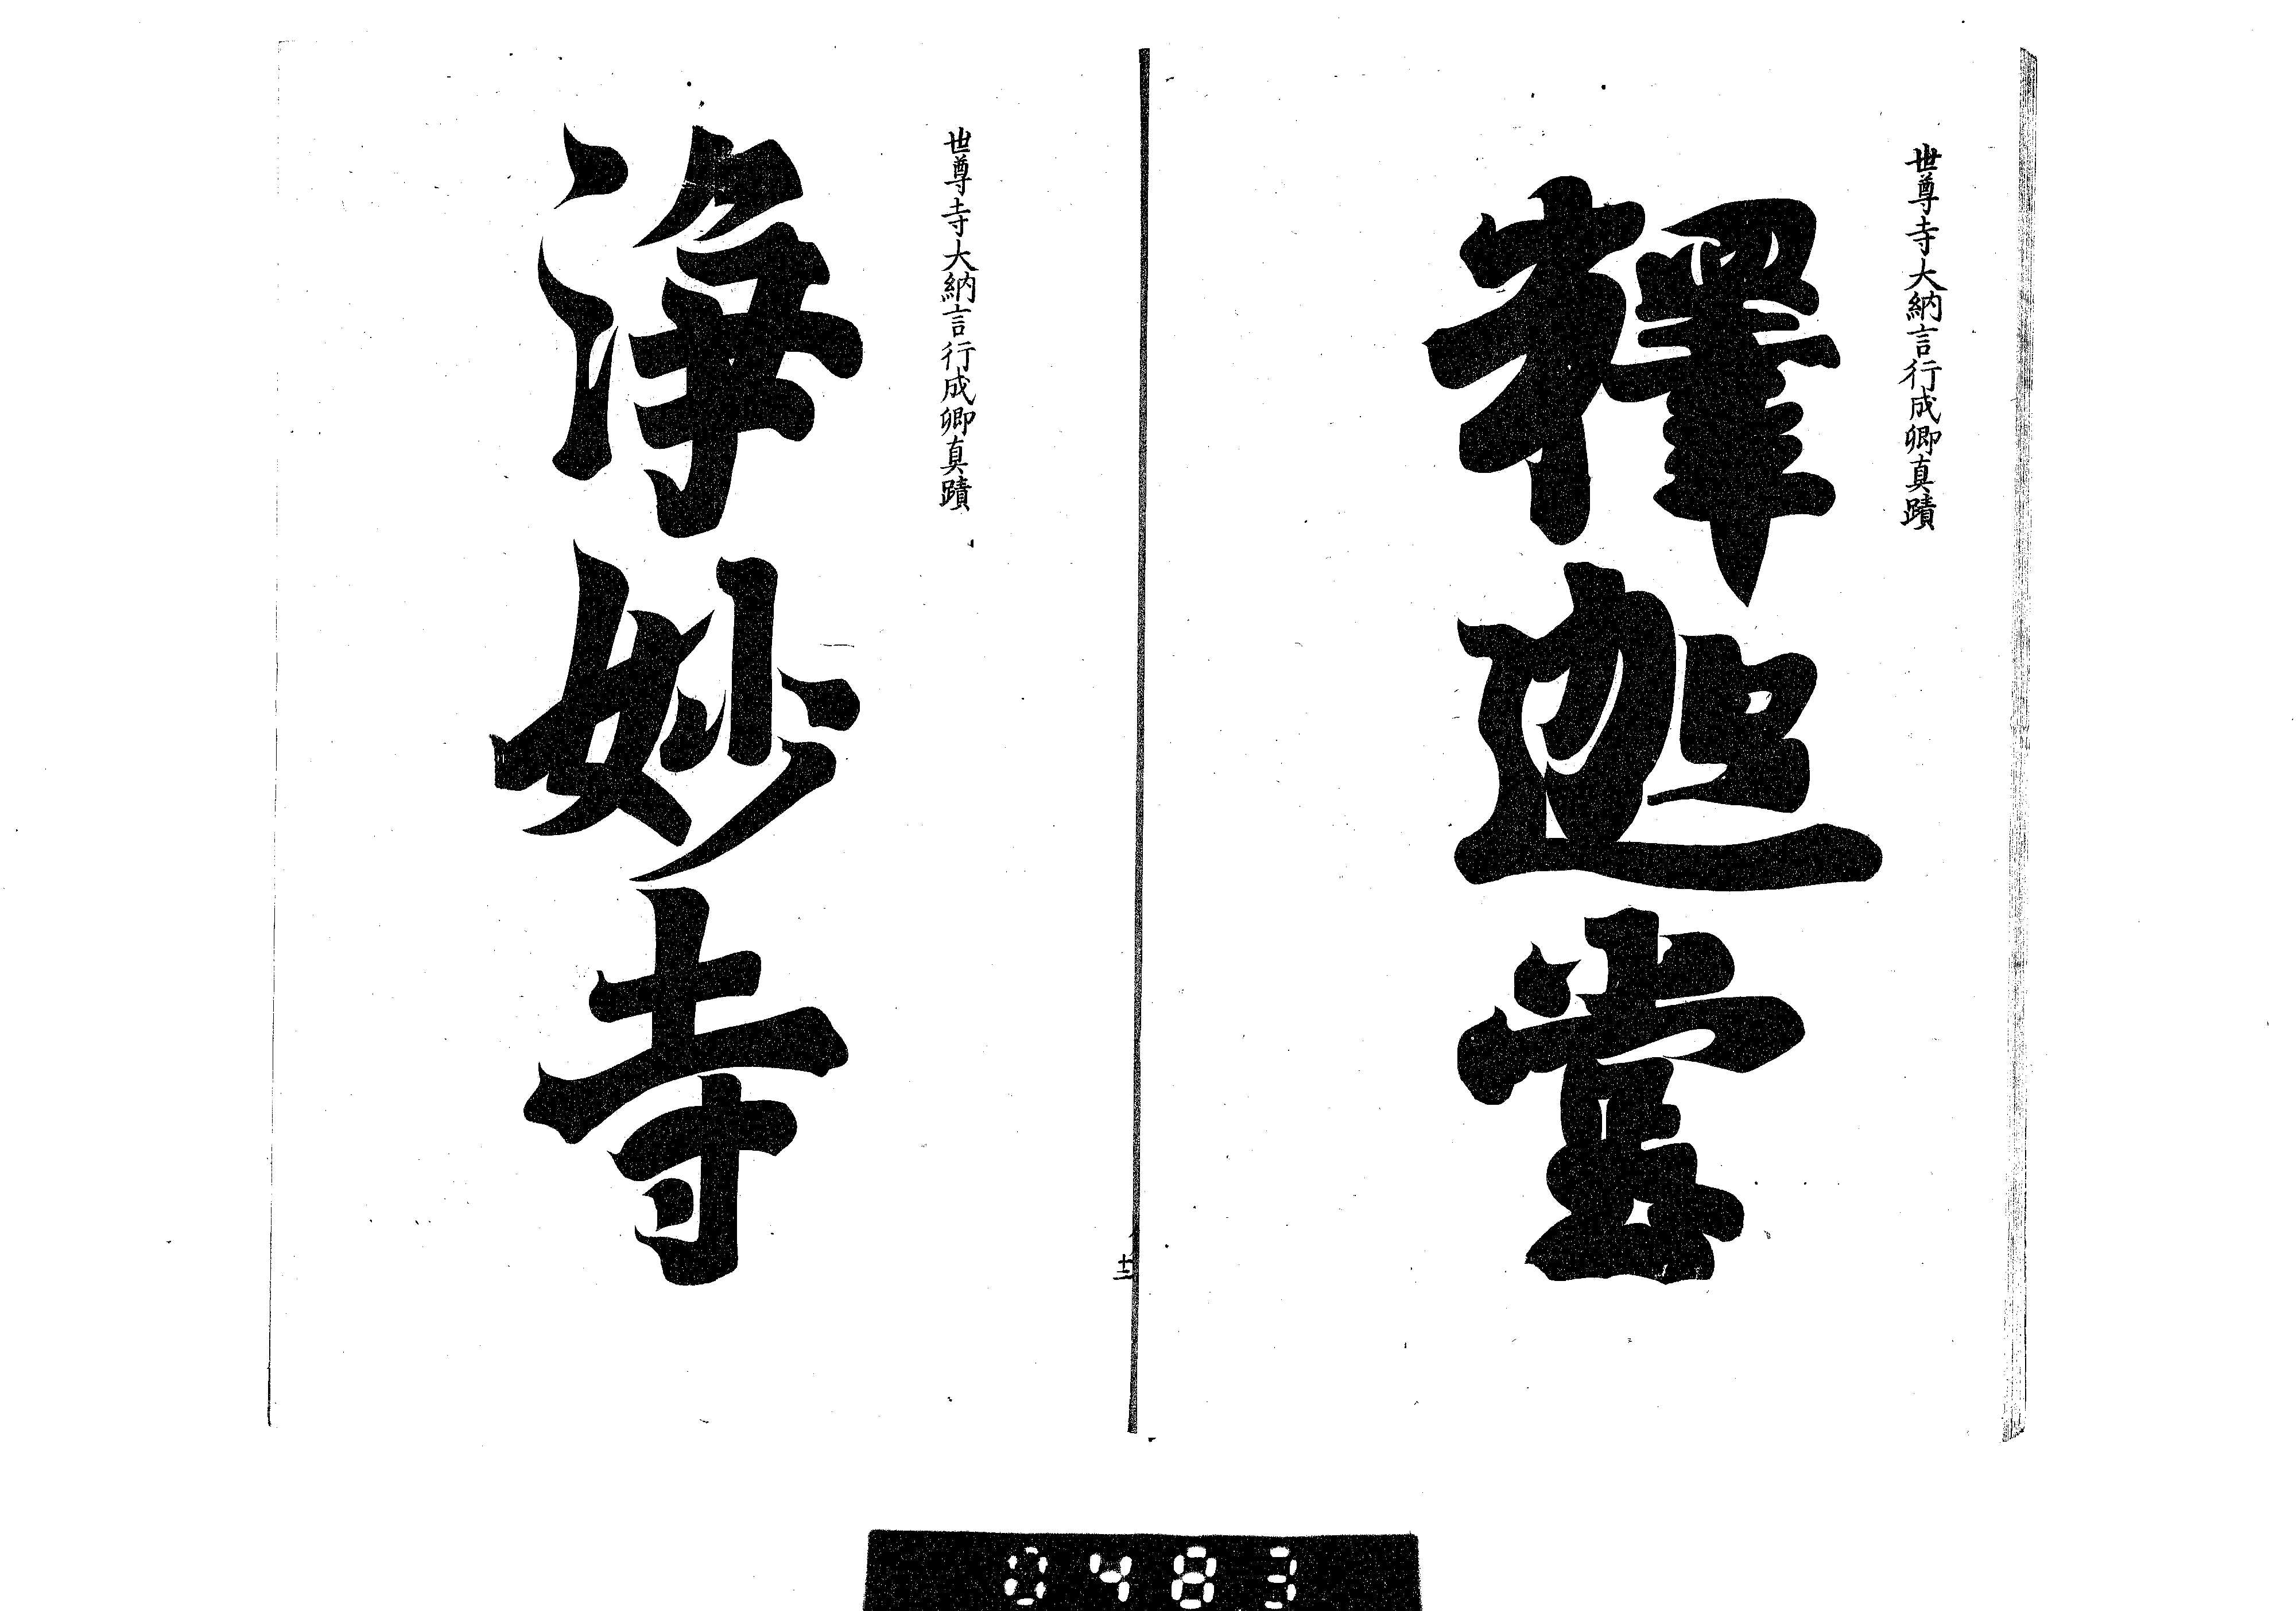 世尊寺大納言行成卿真蹟
釋迦堂
十三
世尊寺大納言行成卿真蹟
浄妙寺
0483